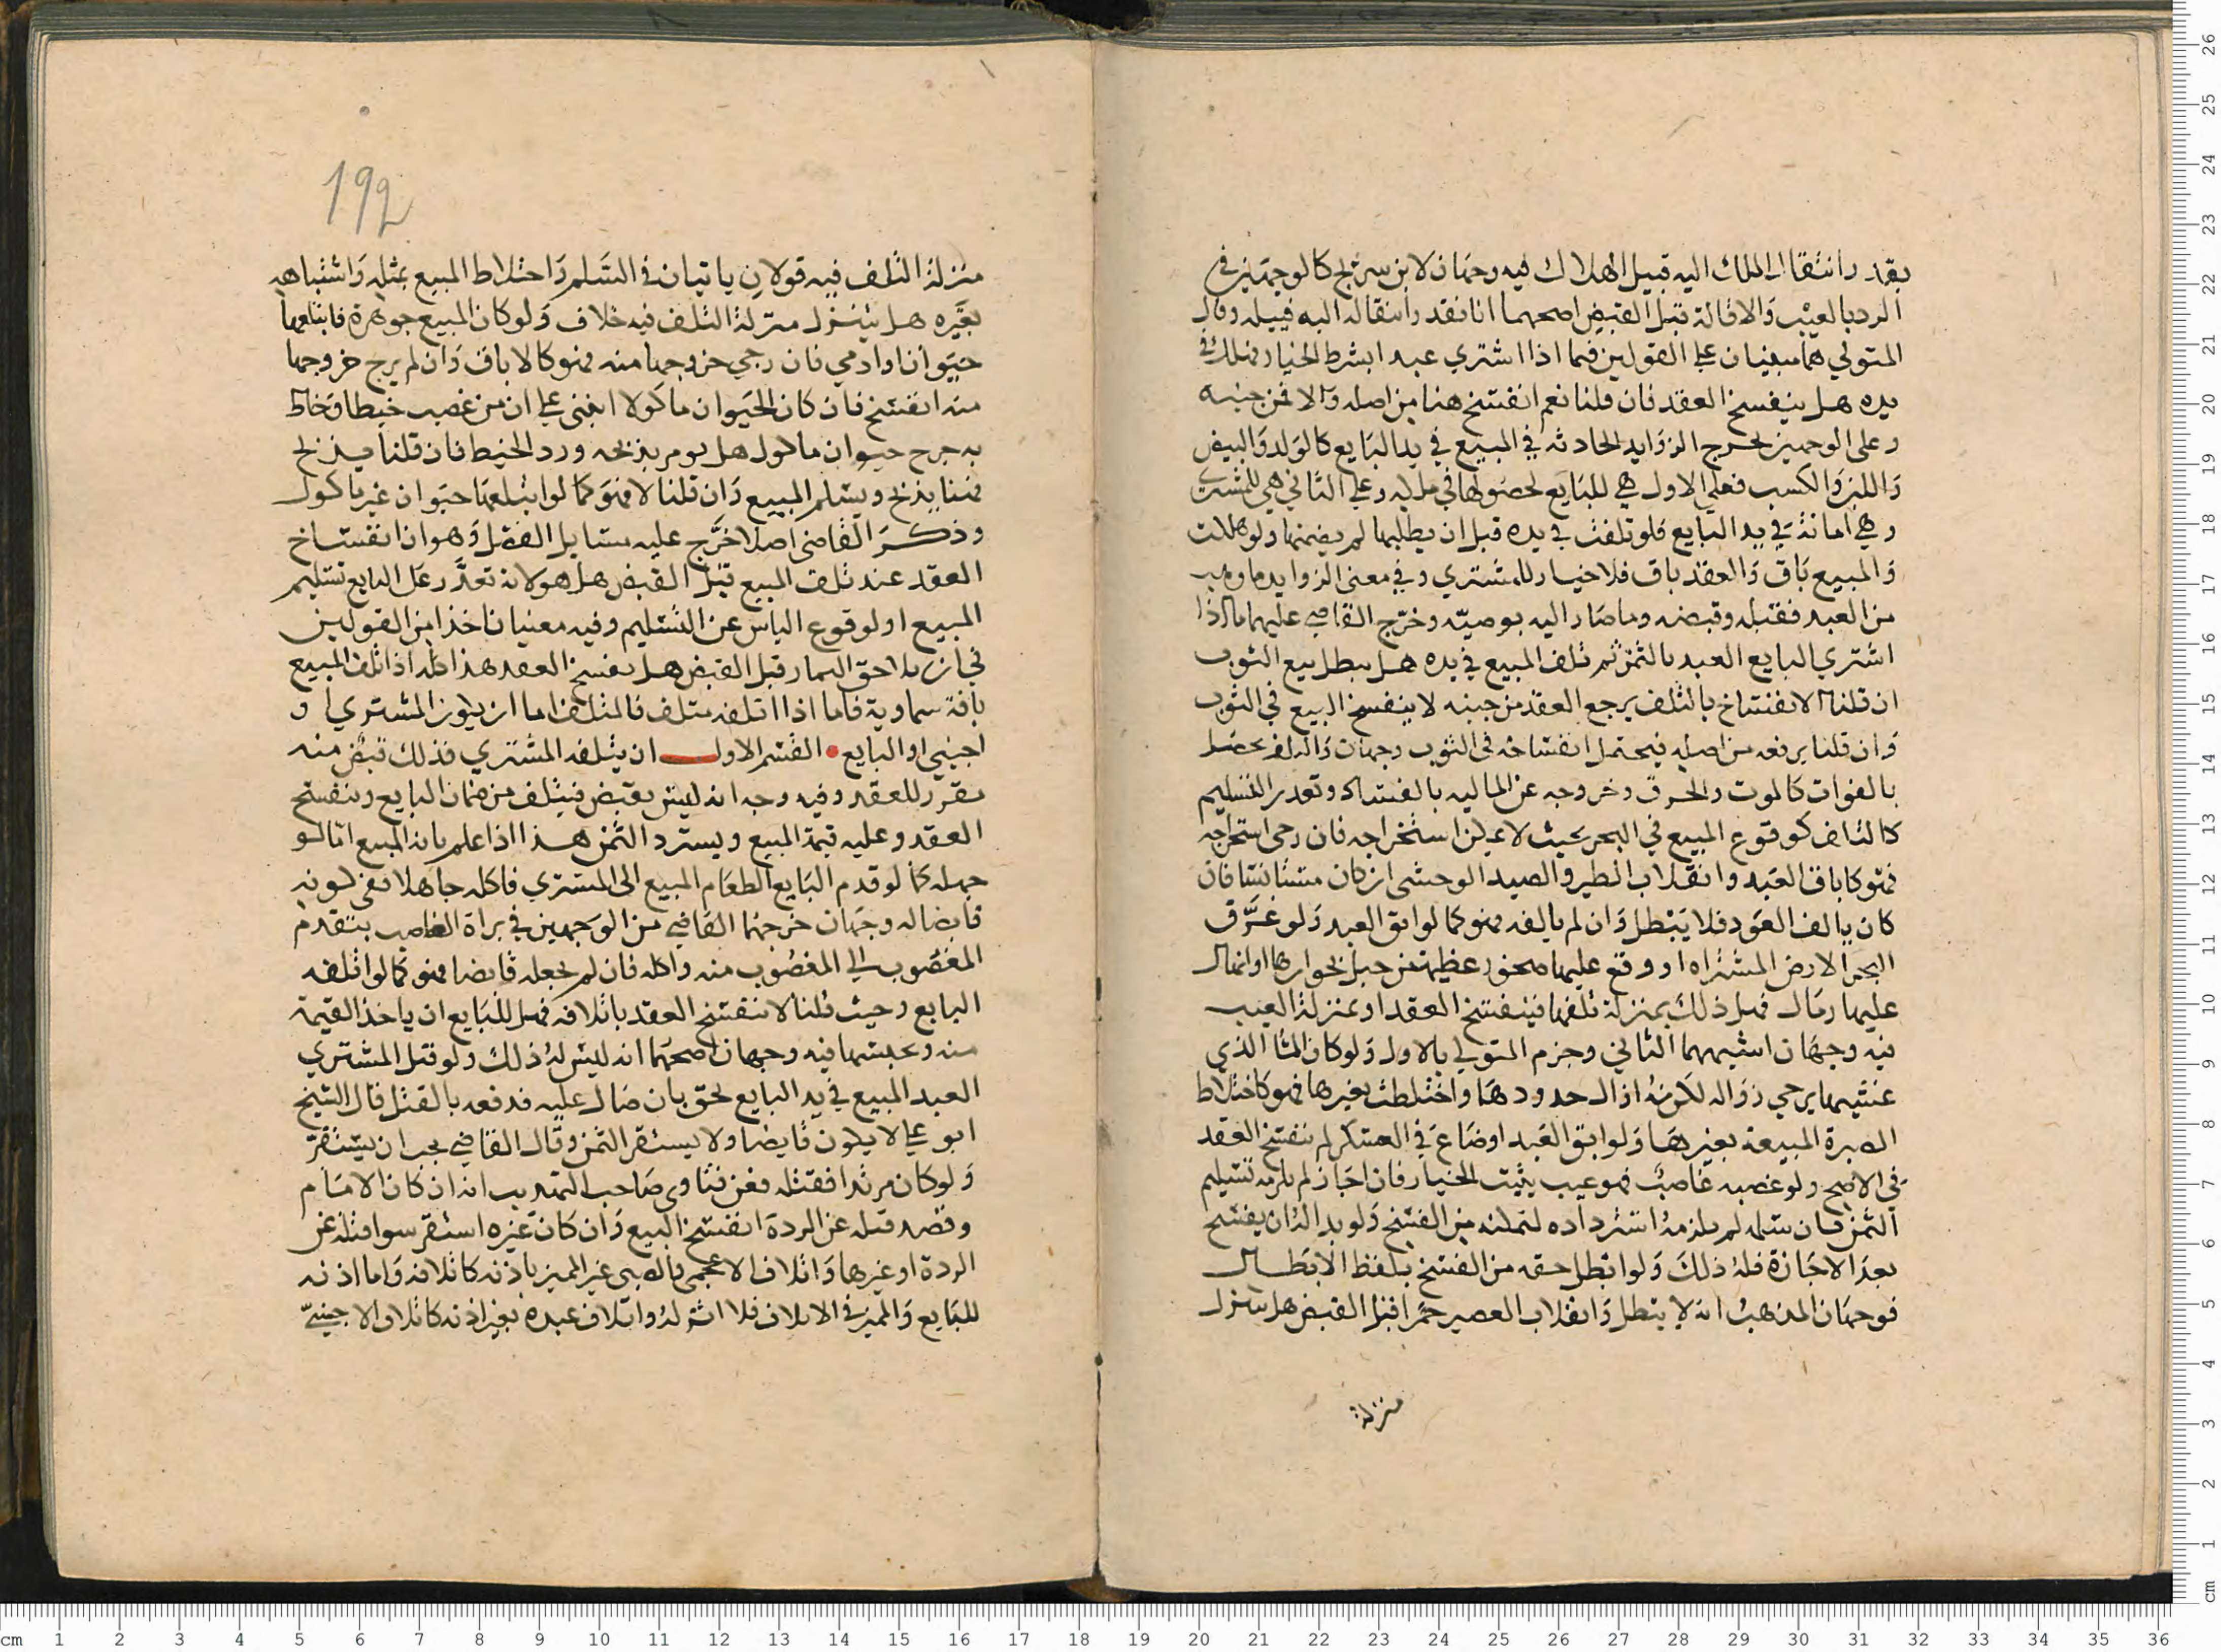 بقد وانتقال الملك اليه قبيل الهلاك فيه وجهان لابن سريج كالوجهين في
الرد بالعيب والاقالة قبل القبض اصحهما انا نقدر انتقاله اليه قبيله وقال
المتولي هما مبنيان على القولين فيما اذا اشترى عبدا بشرط الخيار فهلك في
يده هل ينفسخ العقد فان قلنا نعم انفسخ هنا من اصله والا فمن حينه
وعلى الوجهين تخرج الزوايد الحادثة في المبيع في يد البايع كالولد والبيض
واللبن والكسب فعلى الاول هي للبايع لحصولها في ملكه وعلى الثاني هي للمشتري
وهي امانة في يد البايع فلو تلفت في يده قبل ان يطلبها لم يضمنها ولو هلكت
والمبيع باق والعقد باق فلا خيار للمشتري وفي معنى الزوايد ما وهب
من العبد فقبله وقبضه وما صار اليه بوصيته وخرج القاضي عليهما ما اذا
اشترى البايع العبد بالثمن ثم تلف المبيع في يده هل يبطل بيع الثوب
ان قلنا الانفساخ بالتلف يرجع العقد من حينه لا ينفسخ البيع في الثوب
وان قلنا يرفعه من اصله فيحتمل انفساخه في الثوب وجهان والتلف يحصل
بالفوات كالموت والحرق وخروجه عن المالية بالفساد وتعذر التسليم
كالناض كوقوع المبيع في البحر بحيث لا يمكن استخراجه فان رجي استخراجه
فهو كاباق العبد وانفلات الطير والصيد الوحشي ان كان مستانسا فان
كان يالف العود فلا يبطل وان لم يالفه فهو كما لو ابق العبد ولو غرق
البحر الارض المشتراه او وقع عليها صخور عظيمة من جبل بجوارها او انهال
عليها رمال فهل ذلك بمنزلة تلفها فينفسخ العقد او بمنزلة العيب
فيه وجهان اشبههما الثاني وجزم المتولي بالاول ولو كان الما الذي
غشيها يرجى زواله لكن اذال حدودها واختلطت بغيرها فهو كاختلاط
الصبرة المبيعة بغيرها ولو ابق العبد او ضاع في العسكر لم ينفسخ العقد
في الاصح ولو غصبه غاصب فهو عيب يثبت الخيار فان اجاز لم يلزمه تسليم
الثمن فان سلمه لم يلزمه استرداده لتمكنه من الفسخ ولو بدا له ان يفسخ
بعد الاجازة فله ذلك ولو ابطل حقه من الفسخ بلفظ الابطال
فوجهان المذهب انه لا يبطل وانقلاب العصير خمرا قبل القبض هل ينزل
منزلة
192
منزلة التلف فيه قولان ياتيان في السلم واختلاط المبيع بمثله واشتباهه
بغيره هل ينزل منزلة التلف فيه خلاف ولو كان المبيع جوهرة فابتلعها
حيوان او ادمي فان رجي خروجها منه فهو كالاباق وان لم يرج خروجها
منه انفسخ فان كان الحيوان ماكولا انبنى على ان من غصب خيطا وخاط
به جرح حيوان ماكول هل يومر بذبحه ورد الخيط فان قلنا يذبح
فهنا يذبح ويسلم المبيع وان قلنا لا فهو كما لو ابتلعها حيوان غير ماكول
وذكر القاضي اصلا خرج عليه مسايل الفصل وهو ان انفساخ
العقد عند تلف المبيع قبل القبض هل هو لانه تعذر على البايع تسليم
المبيع او لوقوع الياس عن التسليم وفيه معنيان اخذا من القولين
في ان تلاحق الثمار قبل القبض هل يفسخ العقد هذا كله اذا تلف المبيع
بافة سماوية فاما اذا اتلفه متلف فالمتلف اما ان يكون المشتري او
اجنبي او البايع • القسم الاول ان يتلفه المشتري فذلك قبض منه
مقرر للعقد وفيه وجه انه ليس بقبض فيتلف من ضمان البايع وينفسخ
العقد وعليه قيمة المبيع ويسترد الثمن هذا اذا علم بانه المبيع اما لو
جهله كما لو قدم البايع الطعام المبيع الى المشتري فاكله جاهلا ففي كونه
قابضا له وجهان خرجهما القاضي من الوجهين في براة الغاصب بتقديم
المغصوب الى المغصوب منه واكله فان لم نجعله قابضا فهو كما لو اتلفه
البايع وحيث قلنا لا ينفسخ العقد باتلافه فهل للبايع ان ياخذ القيمة
منه ويحبسها فيه وجهان اصحهما انه ليس له ذلك ولو قتل المشتري
العبد المبيع في يد البايع بحق بان صال عليه فدفعه بالقتل قال الشيخ
ابو علي لا يكون قابضا ولا يستقر الثمن وقال القاضي يجب ان يستقر
ولو كان مرتدا فقتله فعن فتاوى صاحب التهذيب انه ان كان الامام
وقصد قتله عن الردة انفسخ البيع وان كان غيره استقر سوا قتله عن
الردة او غيرها واتلاف الاعجمي والصبي غير المميز باذنه كاتلافه واما اذنه
للبايع والمميز في الاتلاف فلا اثر له واتلاف عبده بغير اذنه كاتلاف الاجنبي